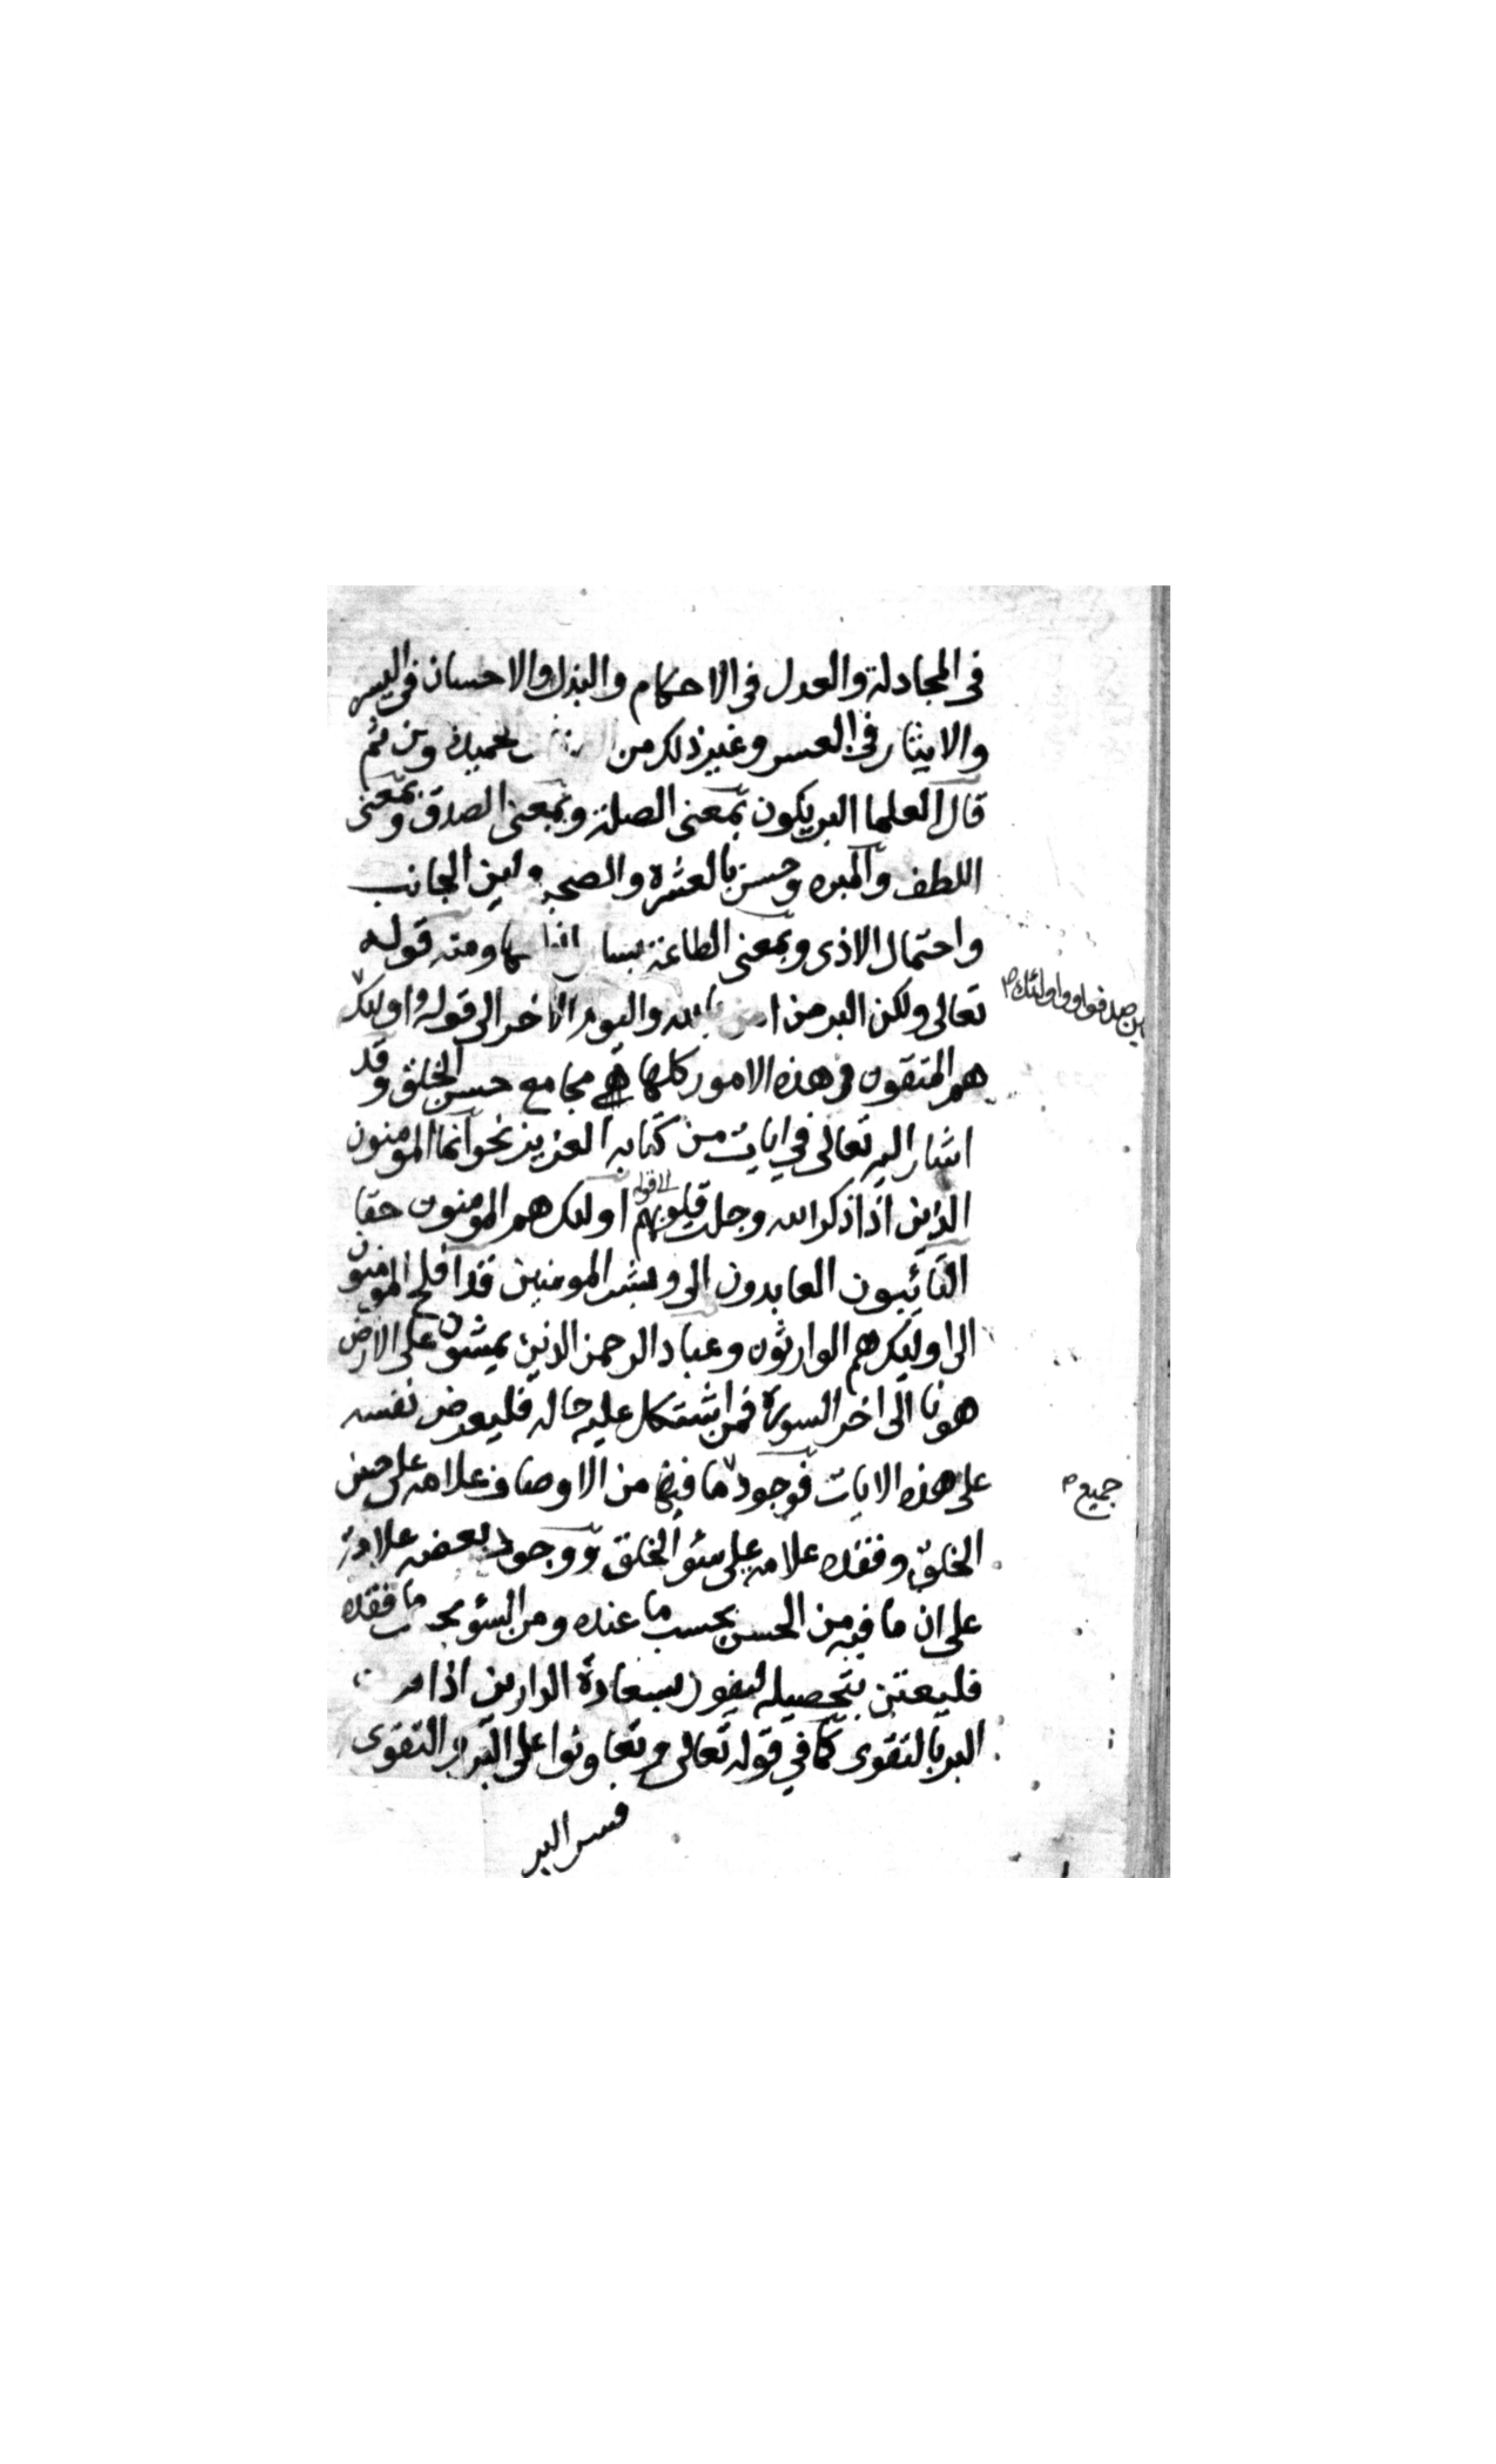 في المجادلة والعدل في الاحكام والبذل والاحسان في اليسر
والايثار في العسر وغير ذلك من الحميدة ومن ثم
قال العلما البر يكون بمعنى الصلة وبمعنى الصدق وبمعنى
اللطف والمبره وحسن بالعشرة والصحبة ولين الجانب
واحتمال الاذى وبمعنى الطاعة بساير انواعها ومنه قوله
تعالى ولكن البر من امن بالله واليوم الاخر الى قوله واوليك
صدقوا واولئك
هم المتقون فهذه الامور كلها هي مجامع حسن الخلق وقد
اشار اليه تعالى في ايات من كتابه العزيز نحو انما المومنون
الذين اذا ذكر الله وجلت قلوبهم الى قوله اوليك هم المومنون حقا
التائبون العابدون الى وبشر المومنين قد افلح المومنون
الى اوليك هم الوارثون وعباد الرحمن الذين يمشون على الارض
هونا الى اخر السورة فمن اشكل عليه حاله فليعرض نفسه
على هذه الايات فوجود ما فيها من الاوصاف علامة على حسن
جميع
الخلق وفقده علامة على سؤ الخلق ووجود بعضه علامة
على ان ما فيه من الحسن بحسب ما عنده ومن السؤ بحسب ما فقده
فليعتن بتحصيله ليفوز بسعادة الدارين اذا
البر بالتقوى كما في قوله تعالى وتعاونوا على البر والتقوى
فسر البر